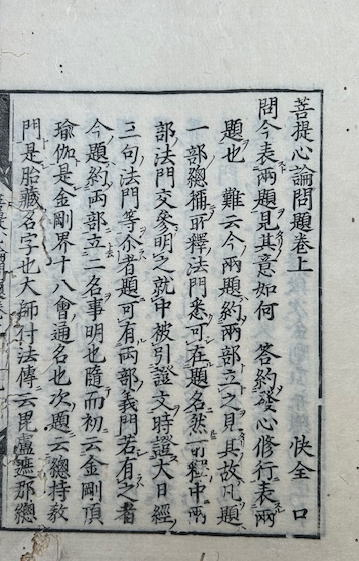 菩提心論問題卷上
快全口
問今表兩題見其意如何 答約發心修行表兩
題也 難云今兩題約兩部立之見其故凡題
一部總稱所釋法門悉可在題名然所釋中兩
部法門交參明之就中被引證文時證大日經
三句法門等尒者題可有兩部義門若有之者
今題約兩部立二名事明也隨而初云金剛頂
瑜伽是金剛界十八會遍名也次題云總持教
門是胎藏名字也大師付法傳云毘盧遮那總